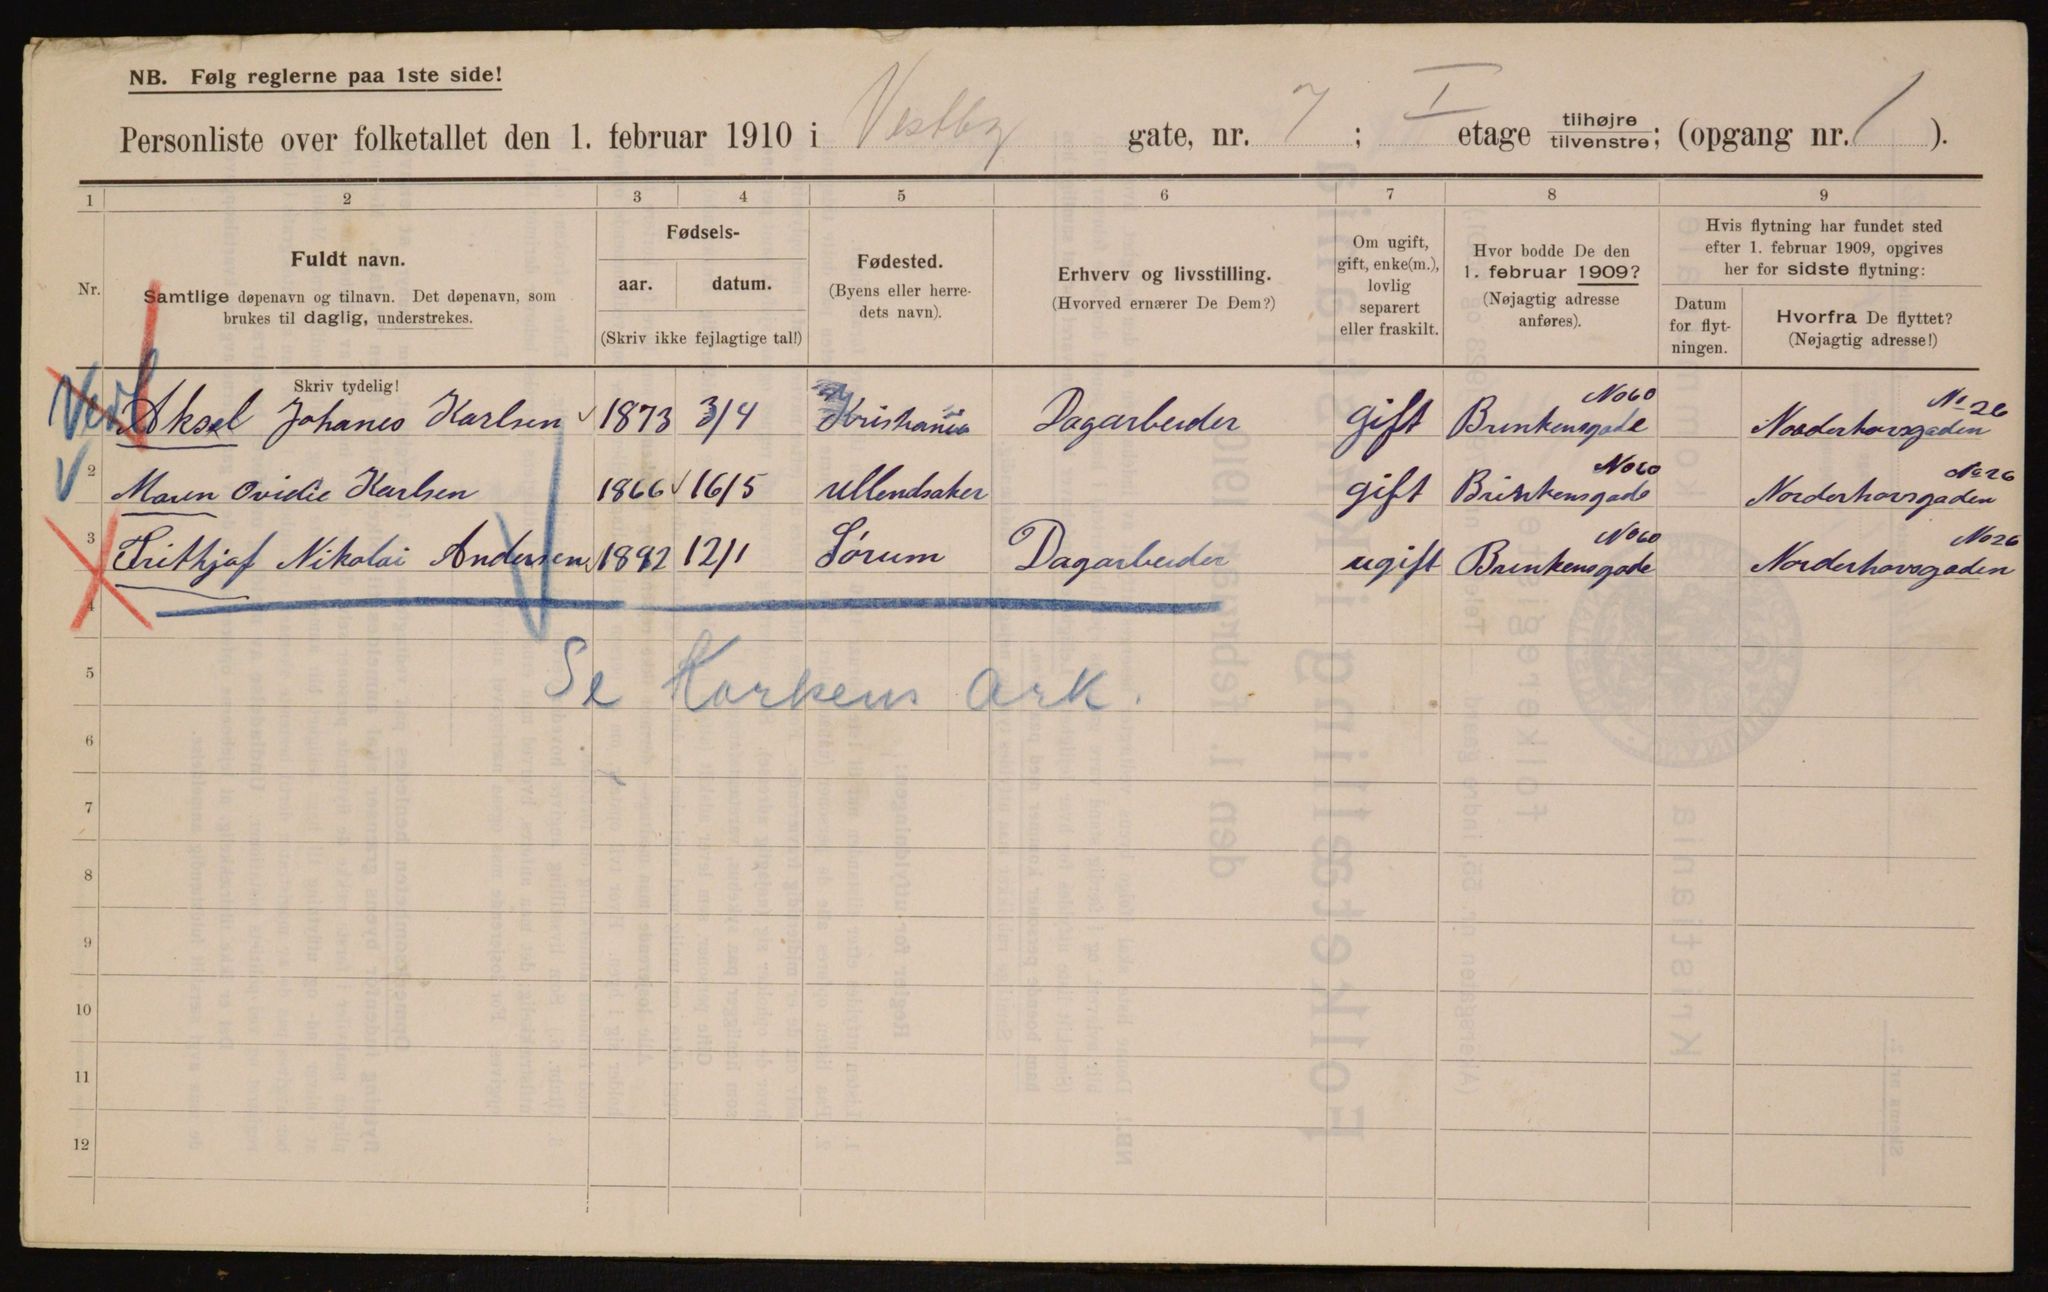 NB. Følg reglerne paa 1ste side!
Personliste over folketallet den 1. februar 1910 i Vestby gate, nr. 7 ; I etage tilhøjre/tilvenstre; (opgang nr. 1 ).
1 2 3 4 5 6 7 8 9
Nr.
Fuldt navn.
Samtlige døpenavn og tilnavn. Det døpenavn, som
brukes til daglig, understrekes.
Skriv tydelig!
Fødsels-
aar. datum.
(Skriv ikke fejlagtige tal!)
Fødested.
(Byens eller herre-
dets navn).
Erhverv og livsstilling.
(Hvorved ernærer De Dem?)
Om ugift,
gift, enke(m.),
lovlig
separert
eller fraskilt.
Hvor bodde De den
1. februar 1909?
(Nøjagtig adresse
anføres).
Hvis flytning har fundet sted
efter 1. februar 1909, opgives
her for sidste flytning:
Datum
for flyt-
ningen.
Hvorfra De flyttet?
(Nøjagtig adresse!)
Aksel Johanes Karlsen 1873 3/4 Kristiania Dagarbeider gift Brinkensgade No 60 Norderhovsgaden No 26
2 Maren Ovidie Karlsen 1866 16/5 Ullendsaker gift Brinkensgade No 60 Norderhovsgaden No 26
3 Frithjof Nikolai Andersen 1892 12/1 Sørum Dagarbeider ugift Brinkensgade No 60 Norderhovsgaden No 26
4
Se Karkens Ark.
5
6
7
8
9
10
11
12